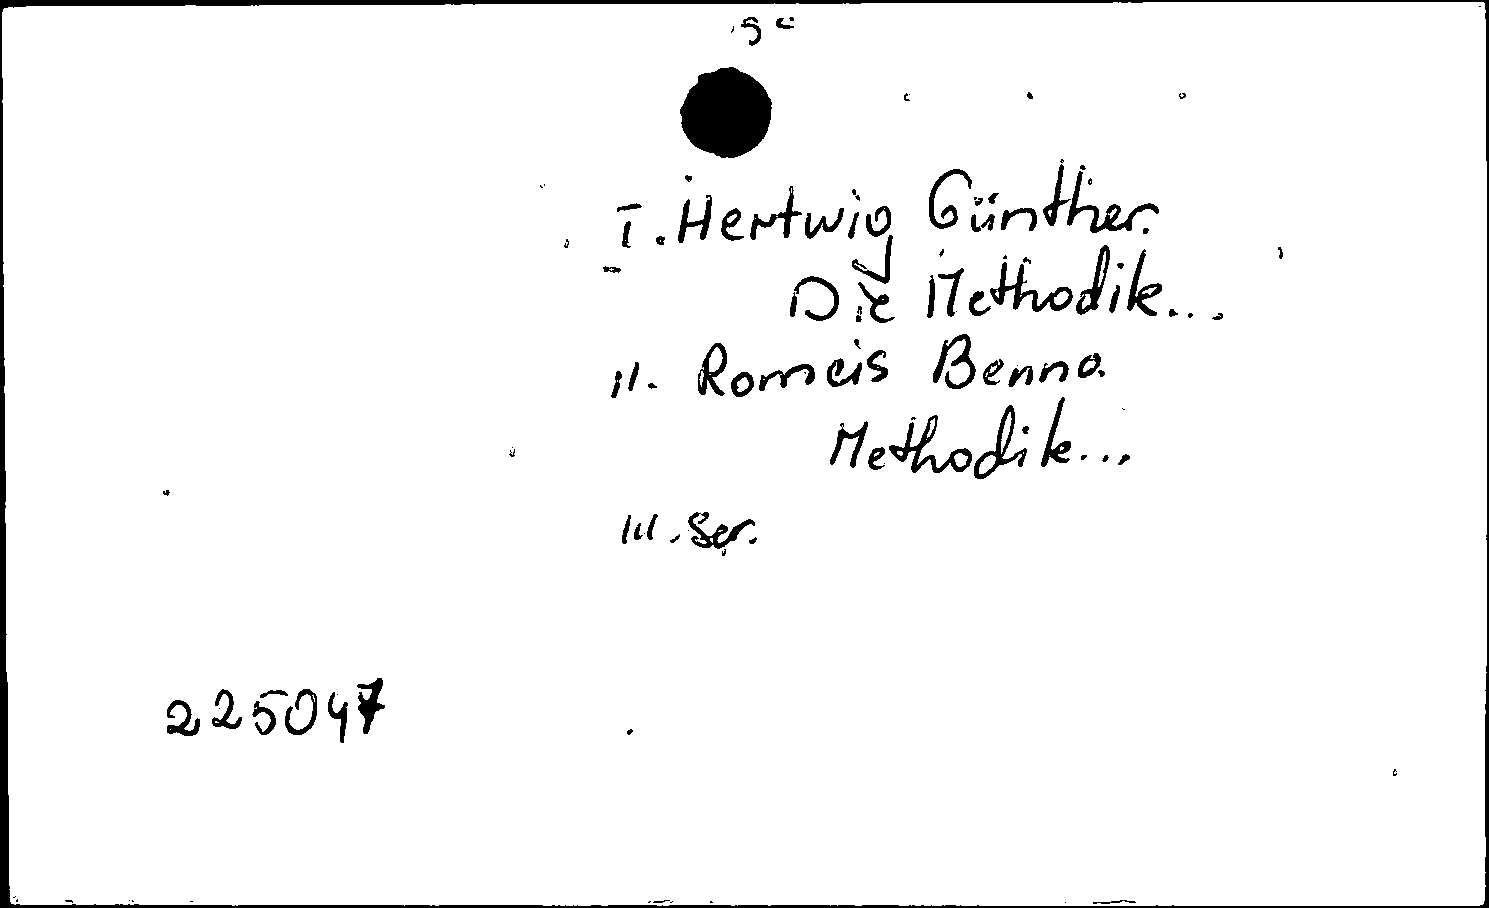 I. Hertwig Günther.
Die Methodik...
II. Romeis Benno.
Methodik...
III. Ser.
225047